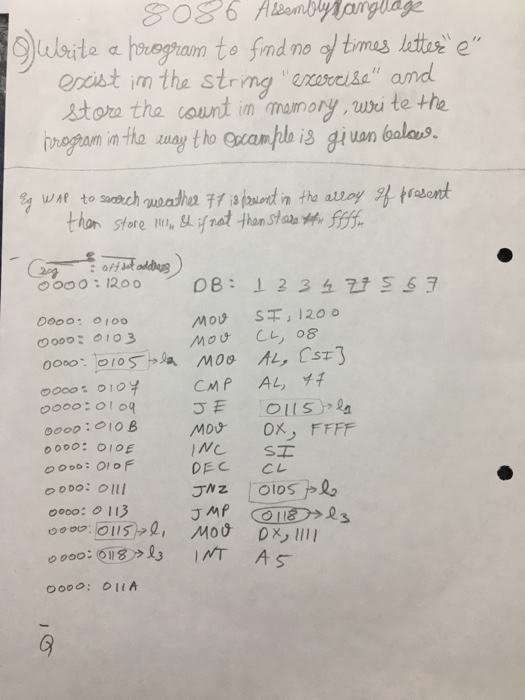 8086 Assembly Language
Q) Write a program to find no of times letter "e"
exist in the string "exercise" and
store the count in memory, write the
program in the way the example is given below.
Eg WAP to search weather 77 is present in the array if present
then store 1111, & if not then store ffff.
(seg : offset address)
0000:1200 DB: 1 2 3 4 77 5 6 7
0000:0100 MOV SI, 1200
0000:0103 MOV CL, 08
0000:0105→l2 MOV AL, [SI]
0000:0107 CMP AL, 77
0000:0109 JE 0115→l1
0000:010B MOV DX, FFFF
0000:010E INC SI
0000:010F DEC CL
0000:0111 JNZ 0105→l2
0000:0113 JMP 0118→l3
0000:0115→l1 MOV DX, 1111
0000:0118→l3 INT A5
0000:011A
Q